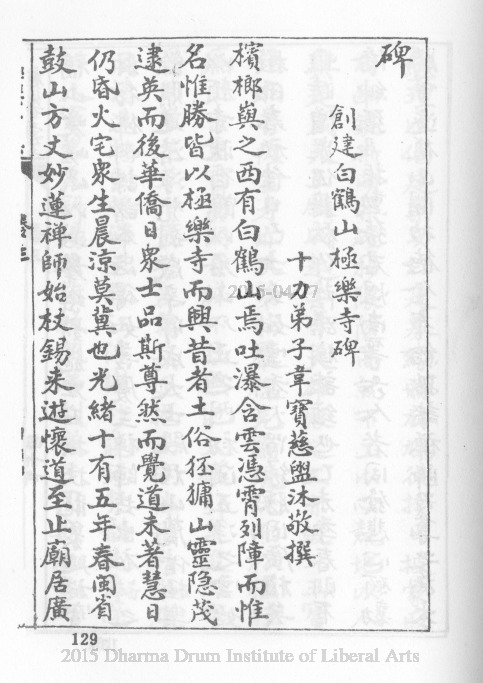 碑
創建白鶴山極樂寺碑
十力弟子韋寶慈盥沐敬撰
檳榔嶼之西有白鶴山焉吐瀑含雲憑霄列障而惟
名惟勝皆以極樂寺而興昔者土俗狉獉山靈隐茂
逮英而後華僑日衆士品斯尊然而覺道未著慧日
仍昏火宅衆生晨涼莫冀也光緒十有五年春閩省
鼓山方丈妙蓮禅師始杖錫来遊懷道至止廟居廣
129
2015-04-27
2015 Dharma Drum Institute of Liberal Arts